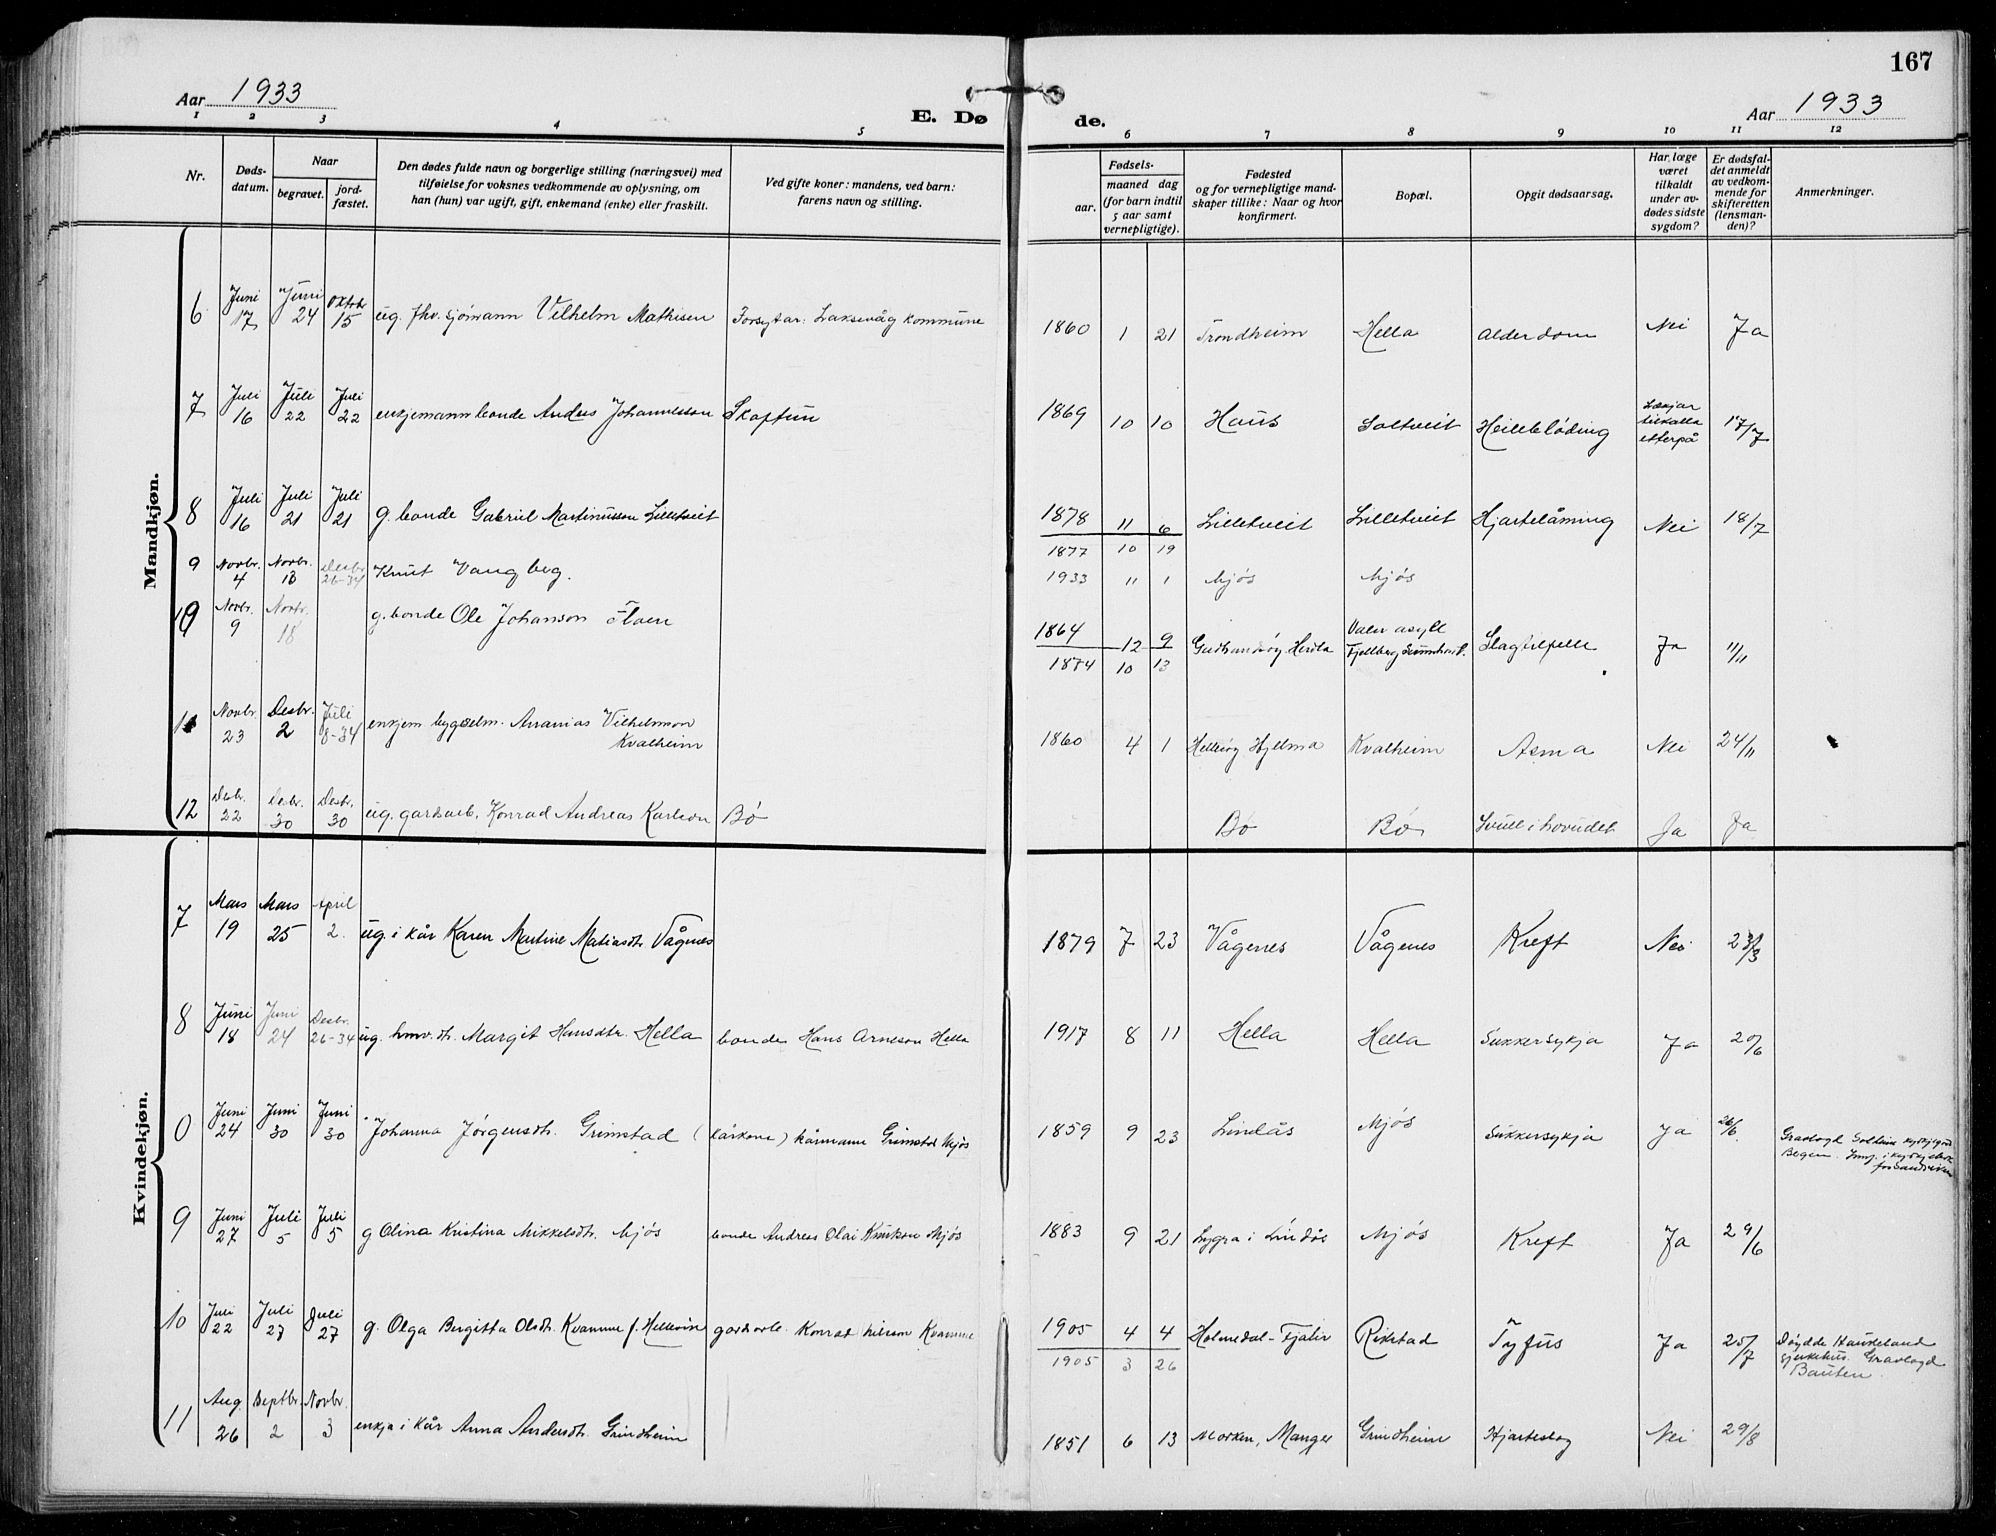 167
Aar 1933
E. Døde.
Aar 1933
1 2 3 4 5 6 7 8 9 10 11 12
Nr.
Døds-
datum.
Naar
begravet.
jord-
fæstet.
Den dødes fulde navn og borgerlige stilling (næringsvei) med
tilføielse for voksnes vedkommende av oplysning, om
han (hun) var ugift, gift, enkemand (enke) eller fraskilt.
Ved gifte koner: mandens, ved barn:
farens navn og stilling.
Fødsels-
aar.
maaned dag
(for barn indtil
5 aar samt
vernepligtige).
Fødested
og for vernepligtige mand-
skaper tillike: Naar og hvor
konfirmert.
Bopæl.
Opgit dødsaarsag.
Har læge
været
tilkaldt
under av-
dødes sidste
sygdom?
Er dødsfal-
det anmeldt
av vedkom-
mende for
skifteretten
(lensman-
den)?
Anmerkninger.
Mandkjøn.
6 Juni 17 Juni 24 Oktob 15 ug. fhv. sjömann Vilhelm Mathisen Forsytar: Laksevåg kommune 1860 1 21 Trondheim Hella Alderdom Nei Ja
7 Juli 16 Juli 22 Juli 22 enkjemann bonde Anders Johannesson Skaftun 1869 10 10 Haus Soltveit Heilebløding Lækjar tilkalla etterpå 17/7
8 Juli 16 Juli 21 Juli 21 g. bonde Gabriel Martinusson Lilletveit 1878 11 6 Lilletveit Lilletveit Hjartelåming Nei 18/7
1877 10 19
9 Novbr. 4 Novbr. 18 Desbr. 26-34 Knut Vangberg. 1933 11 1 Mjøs Mjøs
10 Novbr. 9 Novbr. 18 g. bonde Ole Johanson Floen 1864 12 9 Herdla Valen asyll Fjellberg Slagtilfelle Ja 11/11
1874 10 13
11 Novbr. 23 Desbr. 2 Juli 8-34 enkjem bygselm. Annanias Vilhelmson
Kvalheim 1860 4 1 Hellesøy Hjelma Kvalheim Asma Nei 24/11
12 Desbr. 22 Desbr. 30 Desbr. 30 ug. gardsarb. Konrad Andreas Karlson Bö Bö Bö Svull i hovudet Ja Ja
Kvindekjøn.
7 Mars 19 Mars 25 April 2. ug. i kår Karen Martine Matiasdtr. Vågenes 1879 7 23 Vågenes Vågenes Kreft Nei 23/3
8 Juni 18 Juni 24 Desbr. 26-34 ug. hmv. dtr. Margit Hansdtr. Hella bonde Hans Arneson Hella 1917 8 11 Hella Hella Sukkersykja Ja 20/6
0 Juni 24 Juni 30 Juni 30 Johanna Jørgensdtr. Grimstad (kårkone) kårmann Grimstad Mjøs 1859 9 23 Lindås Mjøs Sukkersykja Ja 26/6 Gravlagd Solheim
Bergen. i kyrkjebok
for
9 Juni 27 Juli 5 Juli 5 g Olina Kristina Mikkelsdtr. Mjøs bonde Andreas Olai Knutson Mjøs 1883 9 21 Lygra i Lindås Mjøs Kreft Ja 29/6
10 Juli 22 Juli 27 Juli 27 g. Olga Bergitta Olsdtr. Kvamme f. Hellevin gardarb. Konrad Nilsson Kvamme 1905 4 4 Holmedal - Fjaler Rikstad Tyfus Ja 25/7 Döydde Haukeland
sjukehus. Gravlagd
Bauten.
1905 3 26
11 Aug. 26 Septbr. 2 Novbr. 3 enkja i kår Anna Andersdtr. Grindheim 1851 6 13 Morken, Manger Grindheim Hjarteslag Nei 29/8